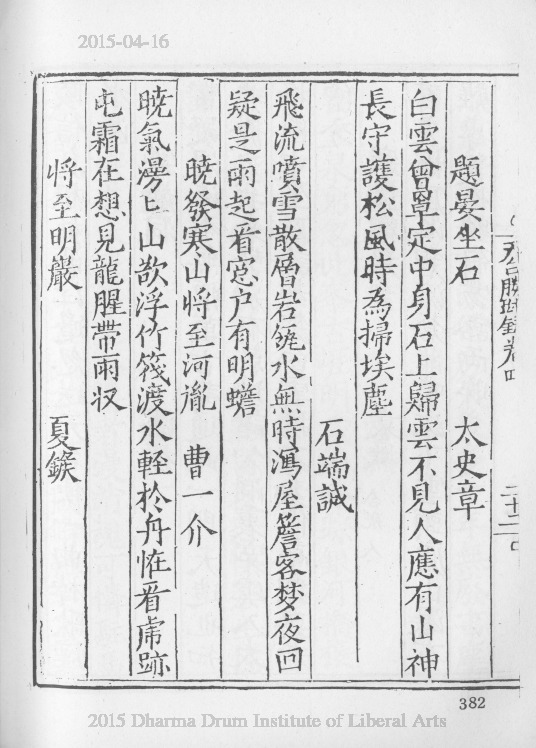 2015-04-16
天台勝蹟錄卷四
二十二
題晏坐石 太史章
白雲曾罩定中身石上歸雲不見人應有山神
長守護松風時為掃埃塵
石端誠
飛流噴雪散層岩毓水無時瀉屋簷客梦夜回
疑是雨起看窓户有明蟾
曉發寒山將至河胤 曹一介
曉氣漫〻山欲浮竹筏渡水輕於舟恠看虎跡
屯霜在想見龍腥帶雨收
將至明巖 夏鍭
382
2015 Dharma Drum Institute of Liberal Arts